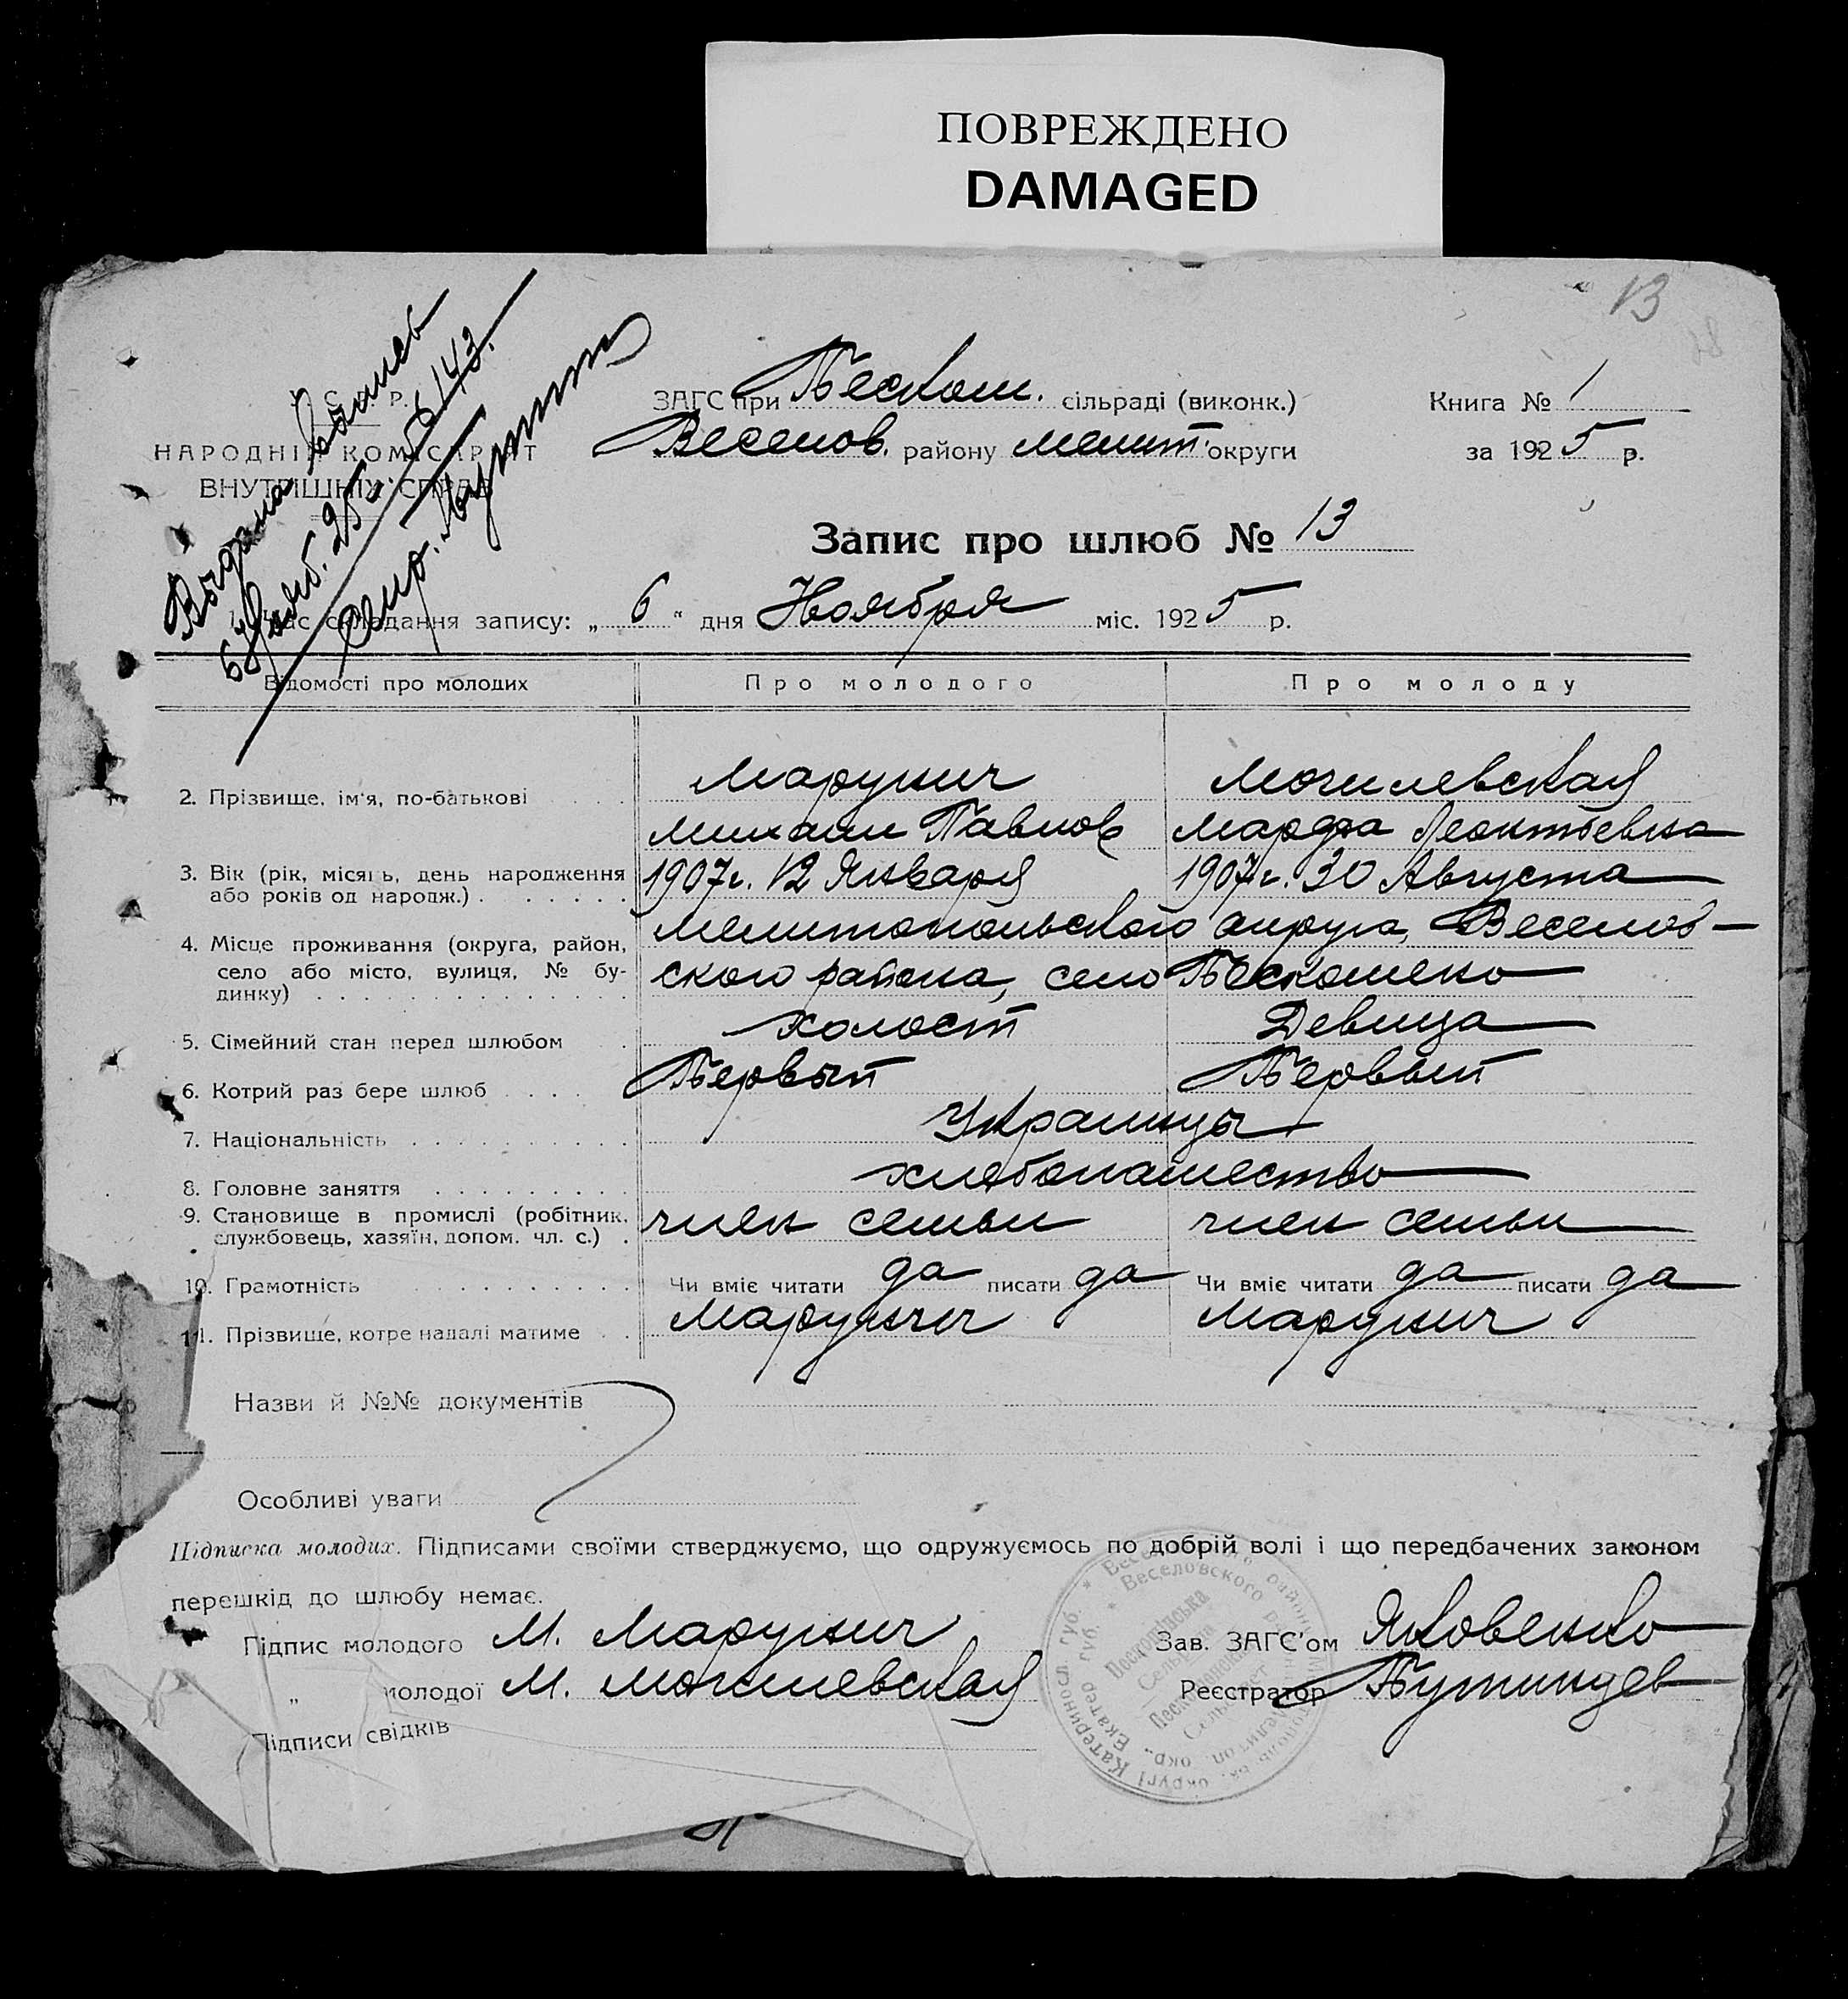 ПОВРЕЖДЕНО
DAMAGED
13
У. С. Р. Р.
НАРОДНІЙ КОМІСАРІЯТ
ВНУТРІШНІХ СПРАВ
Выдана
6 Нояб. 25 г. № 143.
Секр.
ЗАГС при Пескош. сільраді (виконк.)
Веселов. району Мелит. округи
Книга № 1
за 1925 р.
Запис про шлюб № 13
Час складання запису: „ 6 “ дня Ноября міс. 1925 р.
Відомості про молодих Про молодого Про молоду
2. Прізвище, ім'я, по-батькові Марунич Могилевская
Михаил Павлов Марфа Леонтьевна
3. Вік (рік, місяць, день народження 1907 г. 12 Января 1907 г. 30 Августа
або років од народж.)
4. Місце проживання (округа, район, Мелитопольского округа, Веселов-
село або місто, вулиця, № бу- ского района, село Пескошено
динку)
5. Сімейний стан перед шлюбом холост Девица
6. Котрий раз бере шлюб Первый Первый
7. Національність Украинцы
8. Головне заняття хлебопашество
9. Становище в промислі (робітник, член семьи член семьи
службовець, хазяїн, допом. чл. с.)
10. Грамотність Чи вміє читати да писати да Чи вміє читати да писати да
11. Прізвище, котре надалі матиме Марунич Марунич
Назви й №№ документів
Особливі уваги
Підписка молодих. Підписами своїми стверджуємо, що одружуємось по добрій волі і що передбачених законом
перешкід до шлюбу немає.
Підпис молодого М. Марунич
Зав. ЗАГС'ом Яковенко
„ молодої М. Могилевская
Реєстратор Путинцев
Підписи свідків